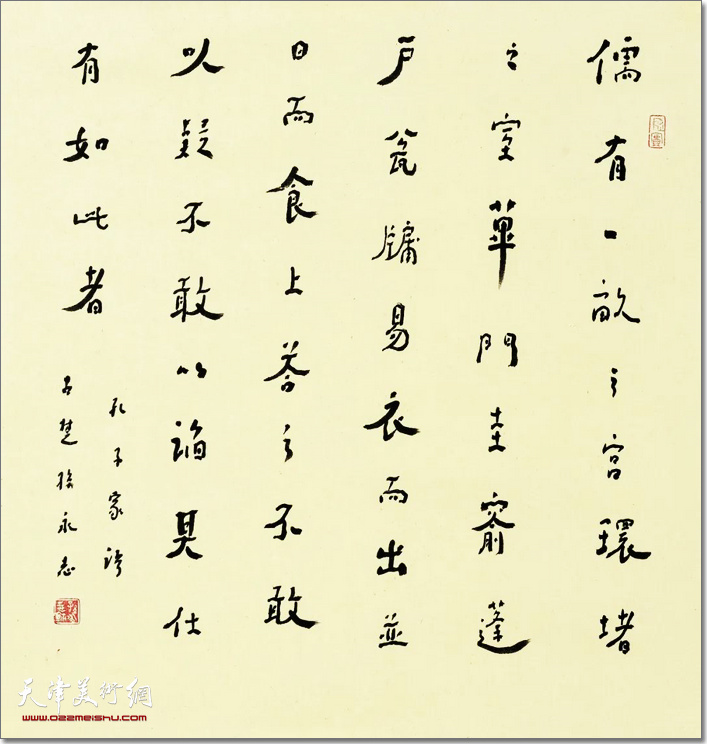 儒有一畝之宮環堵
之室蓽門圭窬蓬
戶瓮牖易衣而出並
日而食上荅之不敢
以疑不敢以諂其仕
有如此者
孔子家語
古楚徐永志
天津美術網
www.022meishu.com